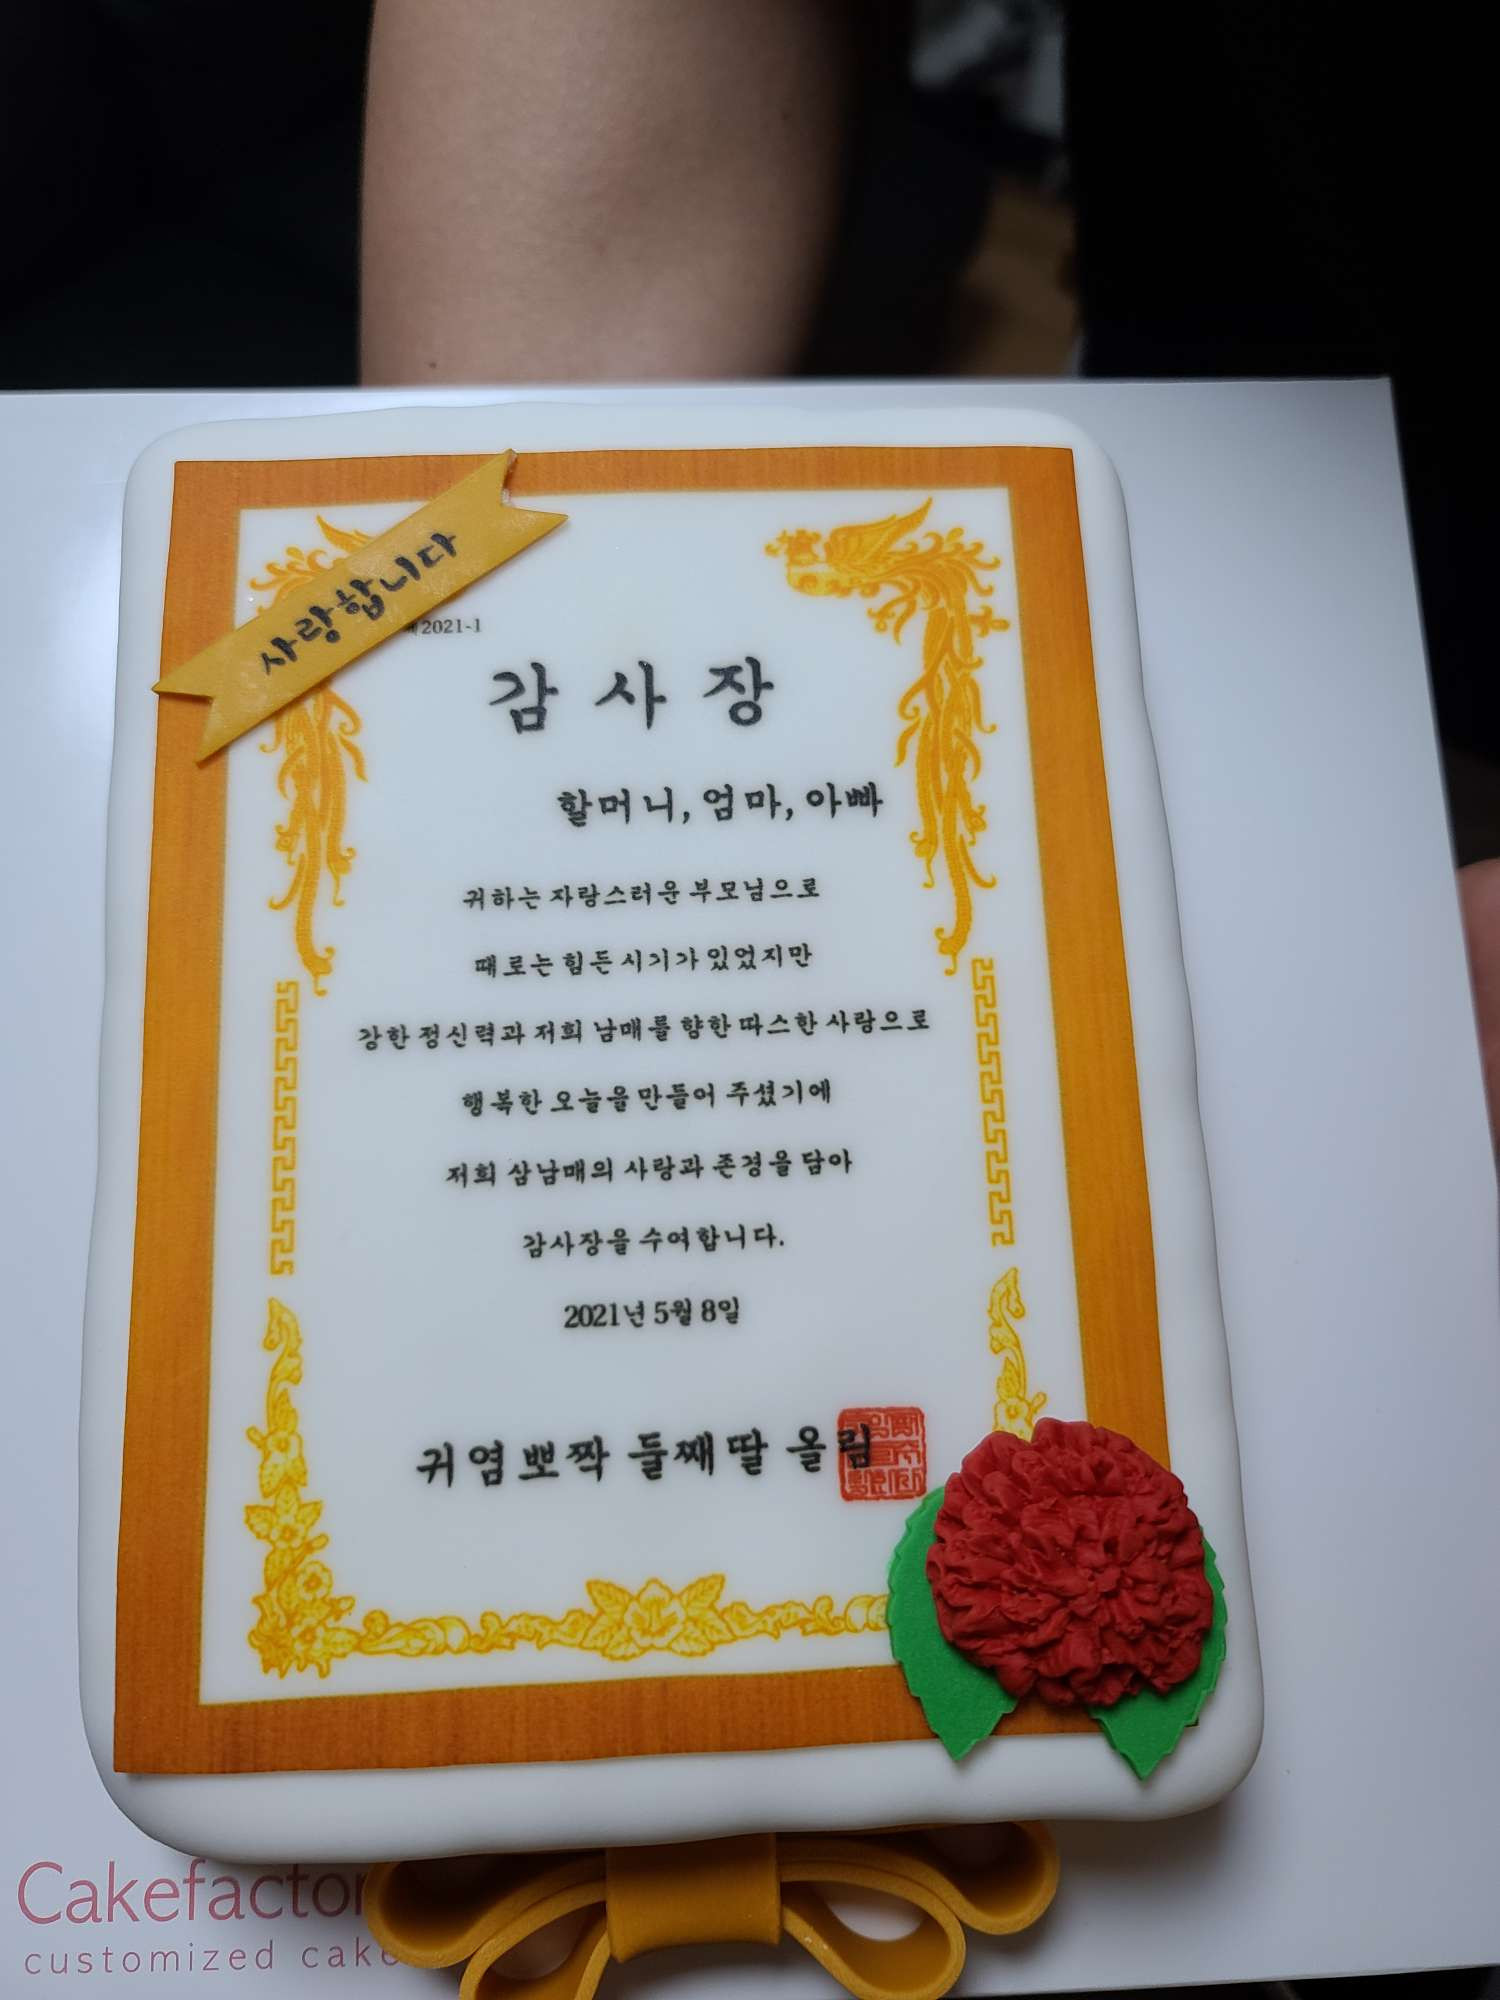 사랑합니다
2021-1
감사장
할머니, 엄마, 아빠
귀하는 자랑스러운 부모님으로
때로는 힘든 시기가 있었지만
강한 정신력과 저희 남매를 향한 따스한 사랑으로
행복한 오늘을 만들어 주셨기에
저희 삼남매의 사랑과 존경을 담아
감사장을 수여합니다.
2021년 5월 8일
귀염뽀짝 둘째딸 올림
Cakefactor
customized cake